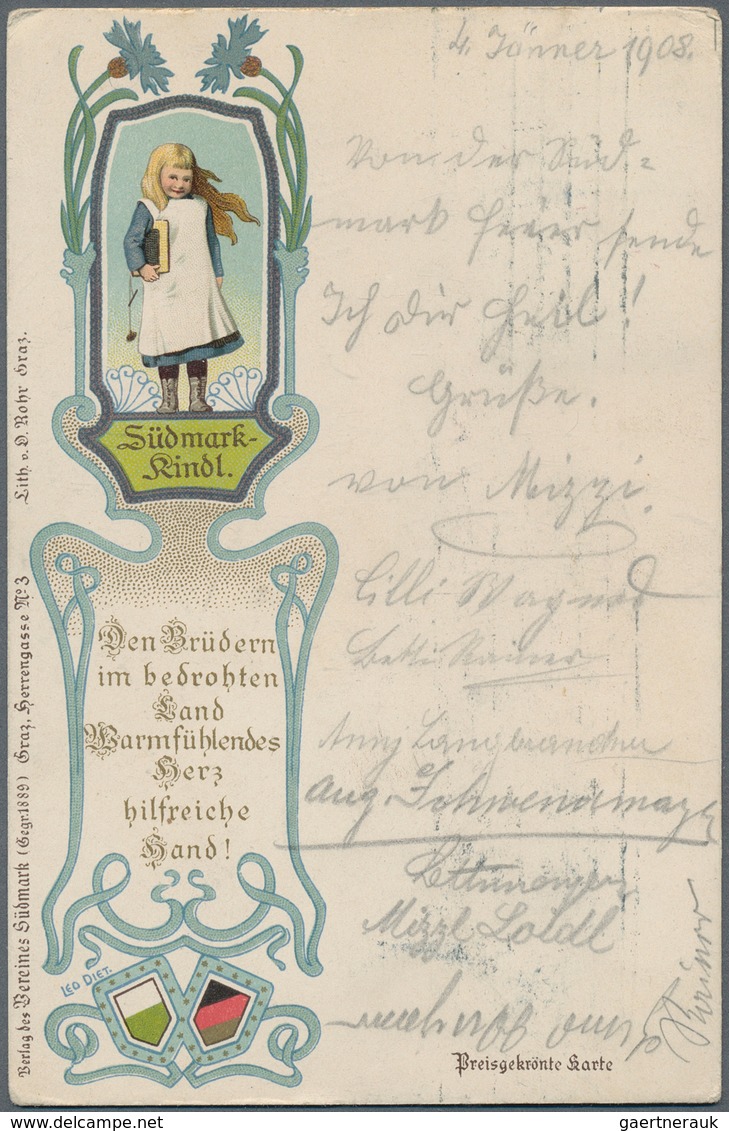 4. Jänner 1908.
Von der Süd-
mark feier sende
Ich dir Heil!
Grüße.
von Mizzi.
Lilli Wagner
Betti Rainer
Anny
Aug.
Mizzl Loidl
Südmark-
Kindl.
Den Brüdern
im bedrohten
Land
Warmfühlendes
Herz
hilfreiche
Hand!
LEO DIET.
Preisgekrönte Karte
Verlag des Vereines Südmark (Gegr. 1889) Graz, Herrengasse No 3
Lith. v. O. Rohr Graz.
gaertnerauk